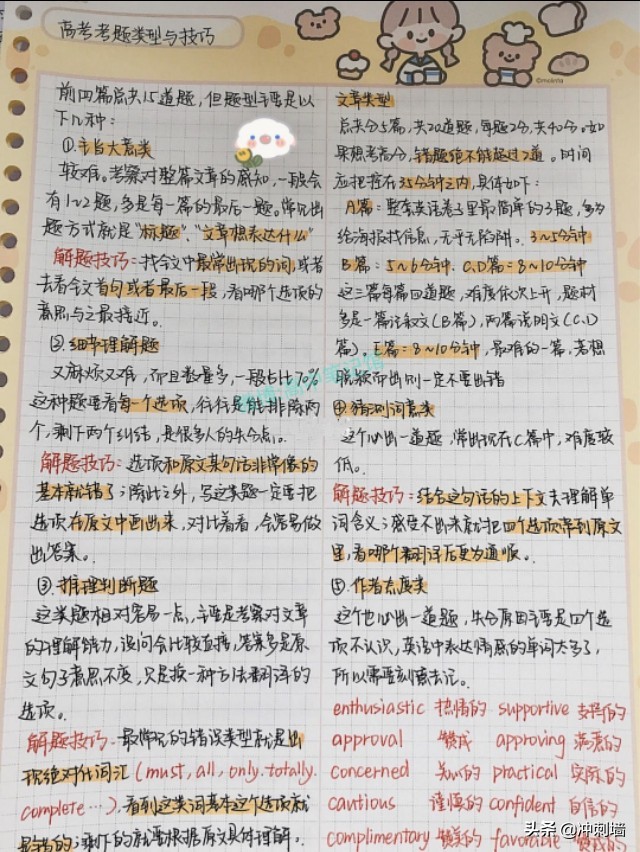 高考考题类型与技巧
©moinfa
前四篇总共15道题，但题型主要是以
下几种：
①主旨大意类
较难。考察对整篇文章的感知，一般会
有1~2题，多是每一篇的最后一题。常见出
题方式就是"标题"、"文章想表达什么"
解题技巧：找全文中最常出现的词，或者
去看全文首句或者最后一段，看哪个选项的
意思与之最接近。
②细节理解题
又麻烦又难，而且数量多，一般占比70%
这种题要看每一个选项，往往是能排除两
个，剩下两个纠结，是很多人的失分点。
解题技巧：选项和原文某句话非常像的
基本就错了；除此之外，写这类题一定要把
选项在原文中画出来，对比着看，会容易做
出答案。
③推理判断题
这类题相对容易一点，主要是考察对文章
的理解能力，设问会比较直接，答案多是原
文句子意思不变，只是换一种方法翻译的
选项。
解题技巧：最常见的错误类型就是出
现绝对化词汇(must, all, only. totally.
complete…)，看到这类词基本这个选项就
是错的；剩下的就要根据原文具体理解。
文章类型
总共分5篇，共20道题，每题2分，共40分。如
果想考高分，错题绝不能超过2道。时间
应把握在35分钟之内，具体如下：
A篇：整套英语卷子里最简单的3题，多为
给海报找信息，几乎无陷阱。3~5分钟
B篇：5~6分钟．C、D篇=8~10分钟
这三篇每篇四道题，难度依次上升，题材
多是一篇记叙文(B篇)，两篇说明文(C、D
篇)。E篇=8~10分钟，最难的一篇，若想
脱颖而出则一定不要出错
④猜测词意类
这个必出一道题，常出现在C篇中，难度较
低。
解题技巧：结合这句话的上下文去理解单
词含义；感受不出来就把四个选项带到原文
里，看哪个翻译后更为通顺。
⑤作者态度类
这个也必出一道题，失分原因主要是四个选
项不认识，英语中表达情感的单词太多了，
所以需要刻意去记。
enthusiastic 热情的 supportive 支持的
approval 赞成 approving 满意的
concerned 关心的 practical 实际的
cautious 谨慎的 confident 自信的
complimentary 赞美的 favorable 赞成的
头条 @冲刺墙